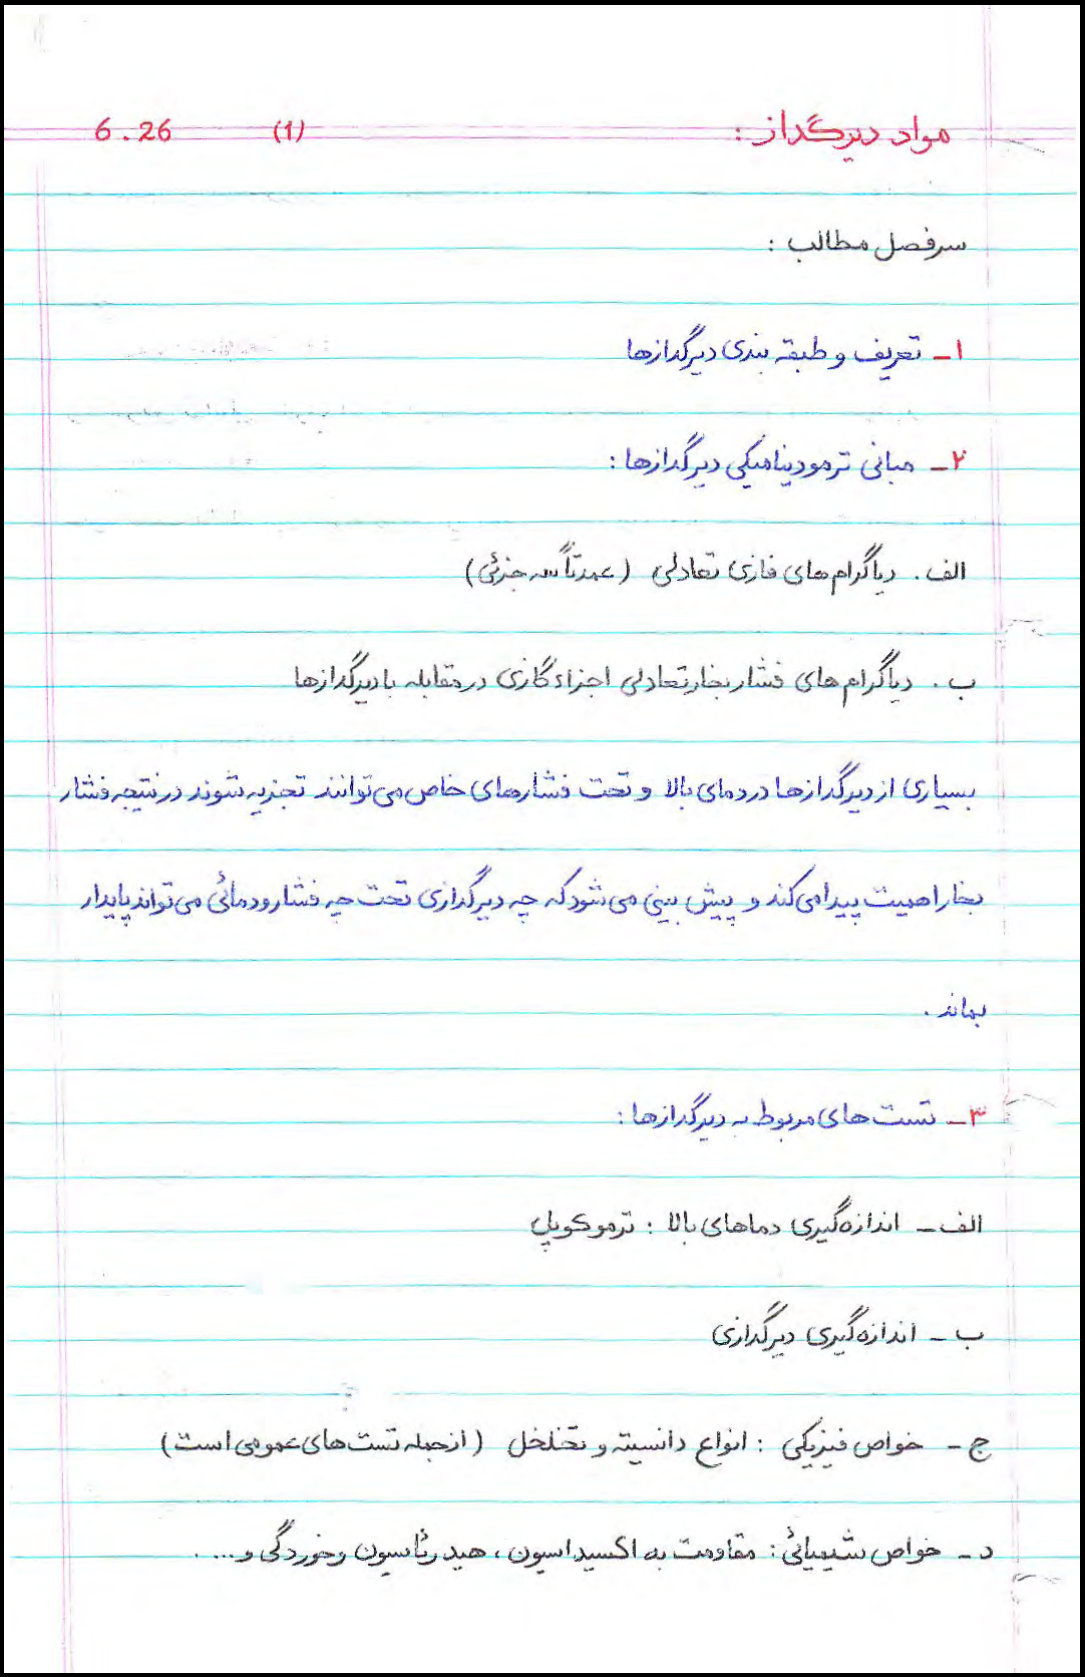 مواد دیرگداز : (1) 6.26
سرفصل مطالب :
۱- تعریف و طبقه بندی دیرگدازها
۲- مبانی ترمودینامیکی دیرگدازها :
الف . دیاگرام های فازی تعادلی (عمدتاً سه جزئی)
ب . دیاگرام های فشار بخار تعادلی اجزاء گازی در مقابله با دیرگدازها
بسیاری از دیرگدازها در دمای بالا و تحت فشارهای خاص می توانند تجزیه شوند در نتیجه فشار
بخار اهمیت پیدا می کند و پیش بینی می شود که چه دیرگدازی تحت چه فشار و دمائی می تواند پایدار
بماند .
۳- تست های مربوط به دیرگدازها :
الف - اندازه گیری دماهای بالا : ترموکوپل
ب - اندازه گیری دیرگدازی
ج - خواص فیزیکی : انواع دانسیته و تخلخل (از جمله تست های عمومی است)
د - خواص شیمیائی : مقاومت به اکسیداسیون ، هیدرتاسیون و خوردگی و... .